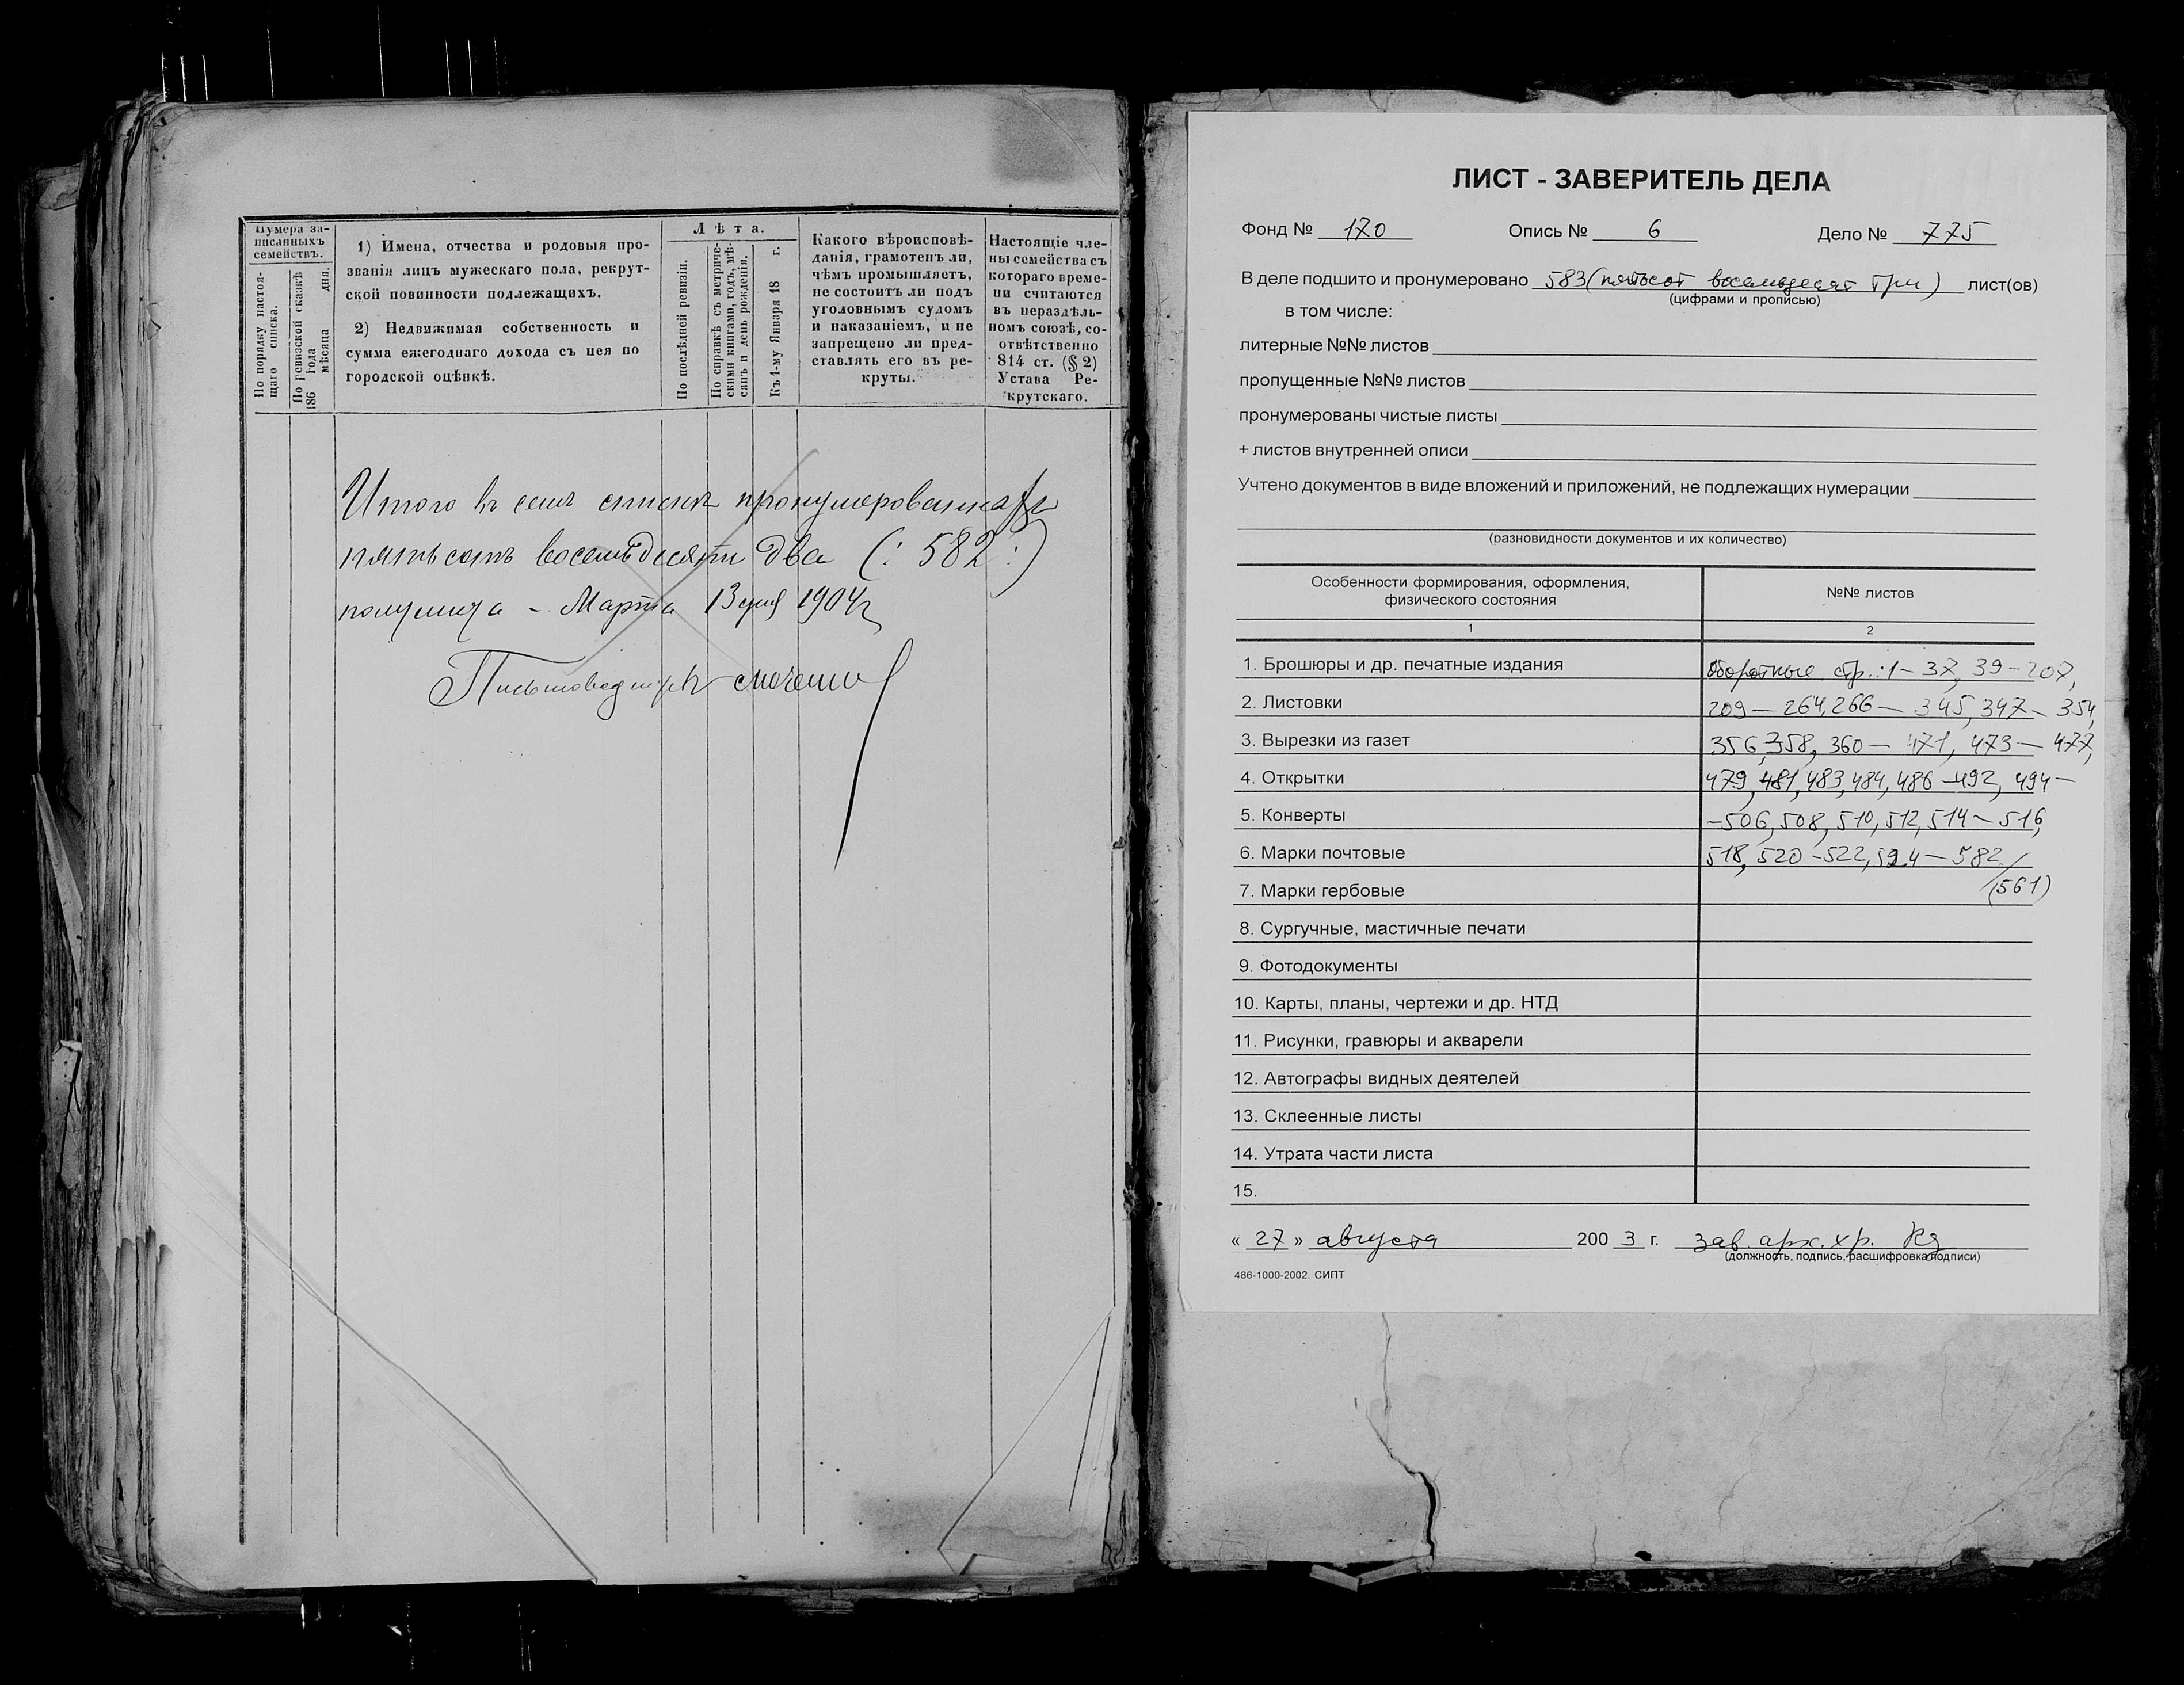 Нумера за-
писанныхъ
семействъ.
По порядку настоя-
щаго списка.
По ревизской сказкѣ
186 года
мѣсяца дня.
1) Имена, отчества и родовыя про-
званія лицъ мужескаго пола, рекрут-
ской повинности подлежащихъ.
2) Недвижимая собственность и
сумма ежегоднаго дохода съ нея по
городской оцѣнкѣ.
Лѣта.
По послѣдней ревизіи.
По справкѣ съ метриче-
скими книгами, годъ, мѣ-
сяцъ и день рожденія.
Къ 1-му Января 18 г.
Какого вѣроисповѣ-
данія, грамотенъ ли,
чѣмъ промышляетъ,
не состоитъ ли подъ
уголовнымъ судомъ
и наказаніемъ, и не
запрещено ли пред-
ставлять его въ ре-
круты.
Настоящіе чле-
ны семейства съ
котораго време-
ни считаются
въ нераздѣль-
номъ союзѣ, со-
отвѣтственно
814 ст. (§ 2)
Устава Ре-
крутскаго.
Итого въ семъ списке пронумерованныхъ
пятьсотъ восемьдесятъ два (: 582 :)
полулиста - Марта 13 дня 1904 г
Письмоводитель
ЛИСТ - ЗАВЕРИТЕЛЬ ДЕЛА
Фонд № 170 Опись № 6 Дело № 775
В деле подшито и пронумеровано 583 (пятьсот восемьдесят три) лист(ов)
(цифрами и прописью)
в том числе:
литерные №№ листов
пропущенные №№ листов
пронумерованы чистые листы
+ листов внутренней описи
Учтено документов в виде вложений и приложений, не подлежащих нумерации
(разновидности документов и их количество)
Особенности формирования, оформления,
физического состояния
№№ листов
1 2
1. Брошюры и др. печатные издания оборотные стр.: 1 – 37, 39 – 207,
2. Листовки 209 – 264, 266 – 345, 347 – 354,
3. Вырезки из газет 356, 358, 360 – 471, 473 – 477,
4. Открытки 479, 481, 483, 484, 486 – 492, 494 –
5. Конверты – 506, 508, 510, 512, 514 – 516,
6. Марки почтовые 518, 520 – 522, 524 – 582
7. Марки гербовые (561)
8. Сургучные, мастичные печати
9. Фотодокументы
10. Карты, планы, чертежи и др. НТД
11. Рисунки, гравюры и акварели
12. Автографы видных деятелей
13. Склеенные листы
14. Утрата части листа
15.
« 27 » августа 200 3 г. зав. арх. хр.
(должность, подпись, расшифровка подписи)
486-1000-2002. СИПТ